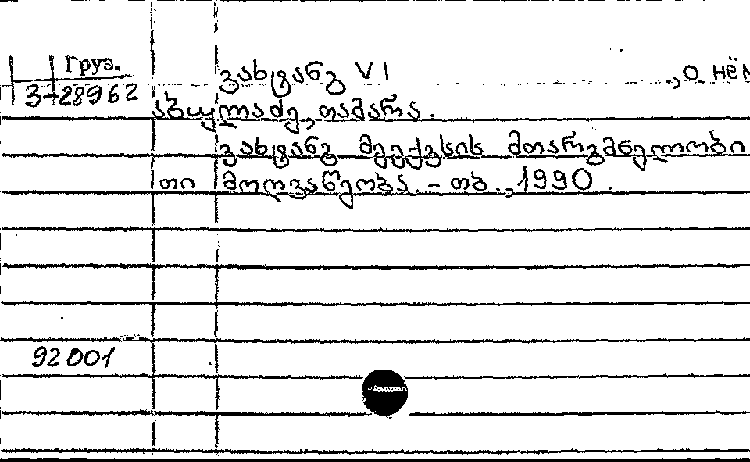 Груз.
ვახტანგ VI „О нём
3-28962
აბულაძე, თამარა.
ვახტანგ მეექვსის მთარგმნელობი
თი მოღვაწეობა. - თბ., 1990.
92001